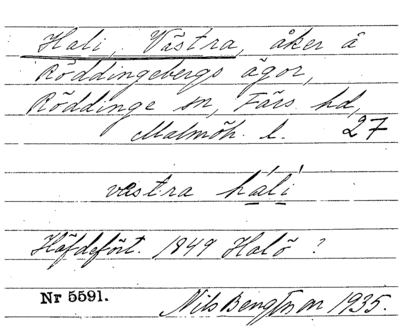 Hali, Västra, åker å
Röddingebergs ägor,
Röddinge sn, Färs hd,
Malmöh. l. 27
västra háli
Häfdefört. 1849 Halö ?
Nr 5591.
Nils Bengtsson 1935.